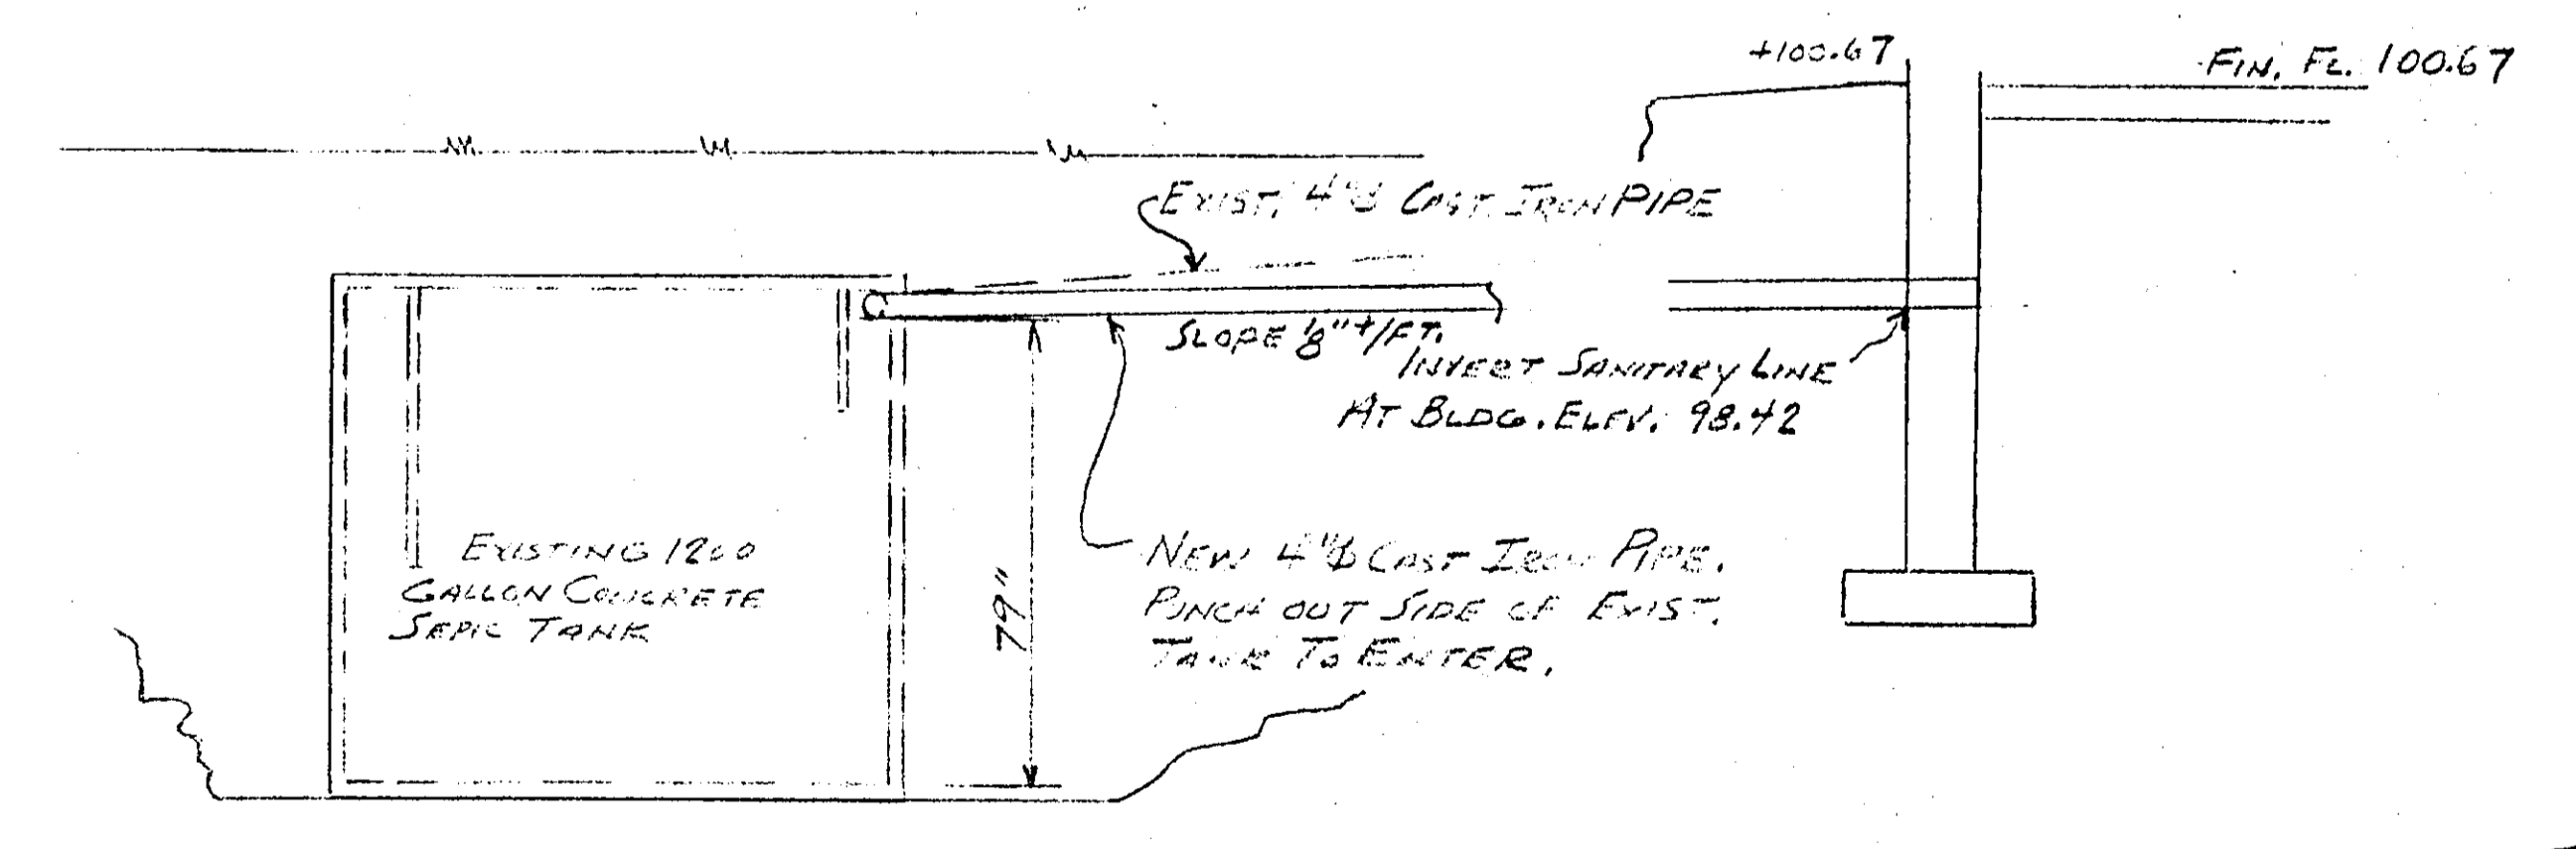 +100.67
FIN. FL. 100.67
EXIST. 4"Ø CAST IRON PIPE
SLOPE 1/8"+/FT.
INVERT SANITARY LINE
AT BLDG. ELEV. 98.42
EXISTING 1200
GALLON CONCRETE
SEPIC TANK
79"
NEW 4"Ø CAST IRON PIPE.
PUNCH OUT SIDE OF EXIST.
TANK TO ENTER.